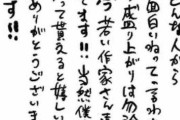 どんな人から
面白いねって言わ
盛り上がりは勿
今若い作家さん
です!!当然僕
って貰えると嬉しい
ありがとうございま
す!!